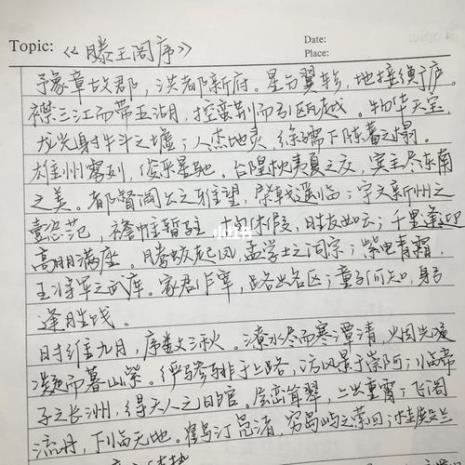 Topic: 《滕王阁序》 Date:
Place:
予豫章故郡，洪都新府。星分翼轸，地接衡庐。
襟三江而带五湖，控蛮荆而引瓯越。物华天宝，
龙光射牛斗之墟；人杰地灵，徐孺下陈蕃之榻。
雄州雾列，俊采星驰，台隍枕夷夏之交，宾主尽东南
之美。都督阎公之雅望，棨戟遥临；宇文新州之
懿范，襜帷暂驻。十旬休假，胜友如云；千里逢迎
高朋满座。腾蛟起凤，孟学士之词宗；紫电青霜，
王将军之武库。家君作宰，路出名区；童子何知，躬
逢胜饯。
时维九月，序属三秋。潦水尽而寒潭清，烟光凝
凝而暮山紫。俨骖騑于上路，访风景于崇阿；临帝
子之长洲，得天人之旧馆。层峦耸翠，上出重霄；飞阁
流丹，下临无地。鹤汀凫渚，穷岛屿之萦回；桂殿兰